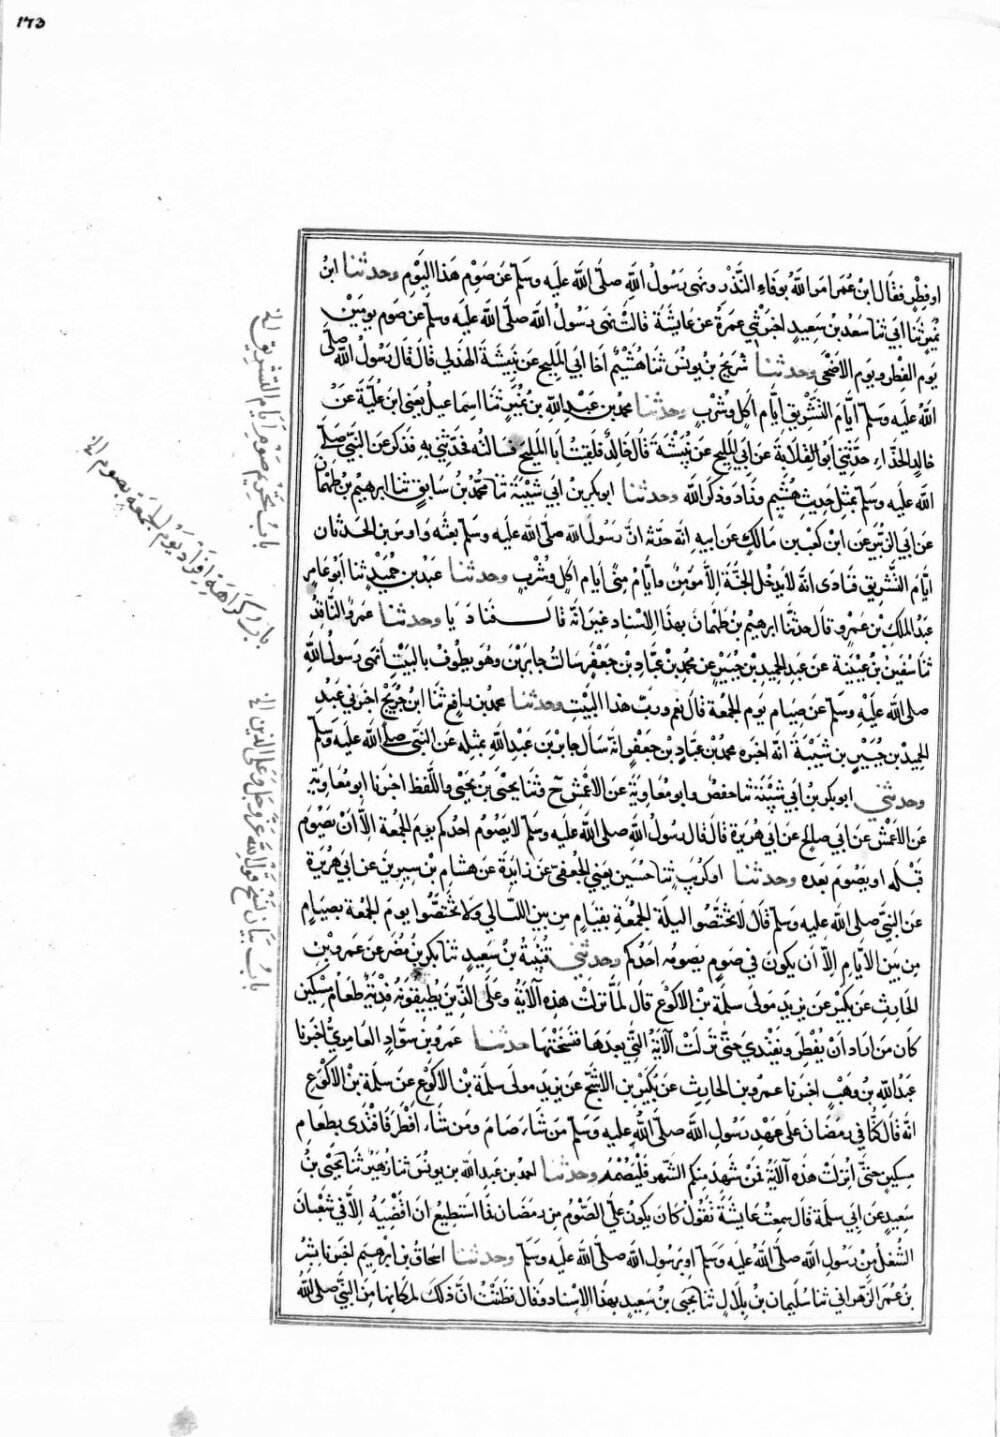 ١٢٣
او فطر فقال ابن عمر امر الله بوفاء النذر ونهى رسول الله صلى الله عليه وسلم عن صوم هذا اليوم وحدثنا ابن
نمير ثنا ابي ثنا سعد بن سعيد اخبرتني عمرة عن عايشة قالت نهى رسول الله صلى الله عليه وسلم عن صوم يومين
يوم الفطر ويوم الاضحى وحدثنا سريج بن يونس ثنا هشيم اخا ابي المليح عن نبيشة الهذلي قال قال رسول الله صلى
الله عليه وسلم ايام التشريق ايام اكل وشرب وحدثنا محمد بن عبد الله بن نمير ثنا اسماعيل يعني ابن علية عن
خالد الحذاء حدثني ابو القلابة عن ابي المليح عن نبيشة قال خالد فلقيت ابا المليح فسالته فحدثني به فذكر عن النبي صلى
الله عليه وسلم بمثل حديث هشيم وزاد وذكر الله وحدثنا ابو بكر بن ابي شيبة ثنا محمد بن سابق ثنا ابرهيم بن طهمان
عن ابي الزبير عن ابن كعب بن مالك عن ابيه انه حدثه ان رسول الله صلى الله عليه وسلم بعثه واوس بن الحدثان
ايام التشريق فنادى انه لا يدخل الجنة الا مومن وايام منى ايام اكل وشرب وحدثنا عبد بن حميد ثنا ابو عامر
عبد الملك بن عمرو قال حدثنا ابرهيم بن طهمان بهذا الاسناد غير انه قال فناديا وحدثنا عمرو الناقد
ثنا سفين بن عيينة عن عبد الحميد بن جبير عن محمد بن عباد بن جعفر سالت جابر بن وهو يطوف بالبيت أنهى رسول الله
صلى الله عليه وسلم عن صيام يوم الجمعة قال نعم ورب هذا البيت وحدثنا محمد بن رافع ثنا ابن جريج اخبرني عبد
الحميد بن جبير بن شيبة انه اخبره محمد بن عباد بن جعفر انه سال جابر بن عبد الله بمثله عن النبي صلى الله عليه وسلم
وحدثني ابو بكر بن ابي شيبة ثنا حفص وابو معاوية عن الاعمش ح وثنا يحيى بن يحيى واللفظ اخبرنا ابو معاوية
عن الاعمش عن ابي صالح عن ابي هريرة قال قال رسول الله صلى الله عليه وسلم لا يصوم احدكم يوم الجمعة الا ان يصوم
قبله او يصوم بعده وحدثنا او كرب ثنا حسين يعني الجعفي عن زايدة عن هشام بن سيرين عن ابي هريرة
عن النبي صلى الله عليه وسلم قال لا تختصوا ليلة الجمعة بقيام من بين الليالي ولا تختصوا يوم الجمعة بصيام
من بين الايام الا ان يكون في صوم يصومه احدكم وحدثني قتيبة بن سعيد ثنا بكر بن مضر عن عمرو بن
الحارث عن بكير عن يزيد مولى سلمة بن الاكوع قال لما نزلت هذه الآية وعلى الذين يطيقونه فدية طعام مسكين
كان من اراد ان يفطر ويفتدي حتى نزلت الآية التي بعدها فنسختها حدثنا عمرو بن سواد العامري اخبرنا
عبد الله بن وهب اخبرنا عمرو بن الحارث عن بكير بن الاشج عن يزيد مولى سلمة بن الاكوع عن سلمة بن الاكوع
انه قال كنا في رمضان على عهد رسول الله صلى الله عليه وسلم من شاء صام ومن شاء افطر فافتدى بطعام
مسكين حتى انزلت هذه الآية فمن شهد منكم الشهر فليصمه وحدثنا احمد بن عبد الله بن يونس ثنا زهير ثنا يحيى بن
سعيد عن ابي سلمة قال سمعت عايشة تقول كان يكون علي الصوم من رمضان فما استطيع ان اقضيه الا في شعبان
الشغل من رسول الله صلى الله عليه وسلم او برسول الله صلى الله عليه وسلم وحدثنا اسحاق بن ابرهيم اخبرنا بشر
بن عمر الزهراني ثنا سليمان بن بلال ثنا يحيى بن سعيد بهذا الاسناد وقال فظننت ان ذلك لمكانها من النبي صلى الله
باب تحريم صوم ايام التشريق الخ
باب كراهة افراد يوم الجمعة بصوم الخ
باب بيان نسخ قول الله عز وجل وعلى الذين الخ